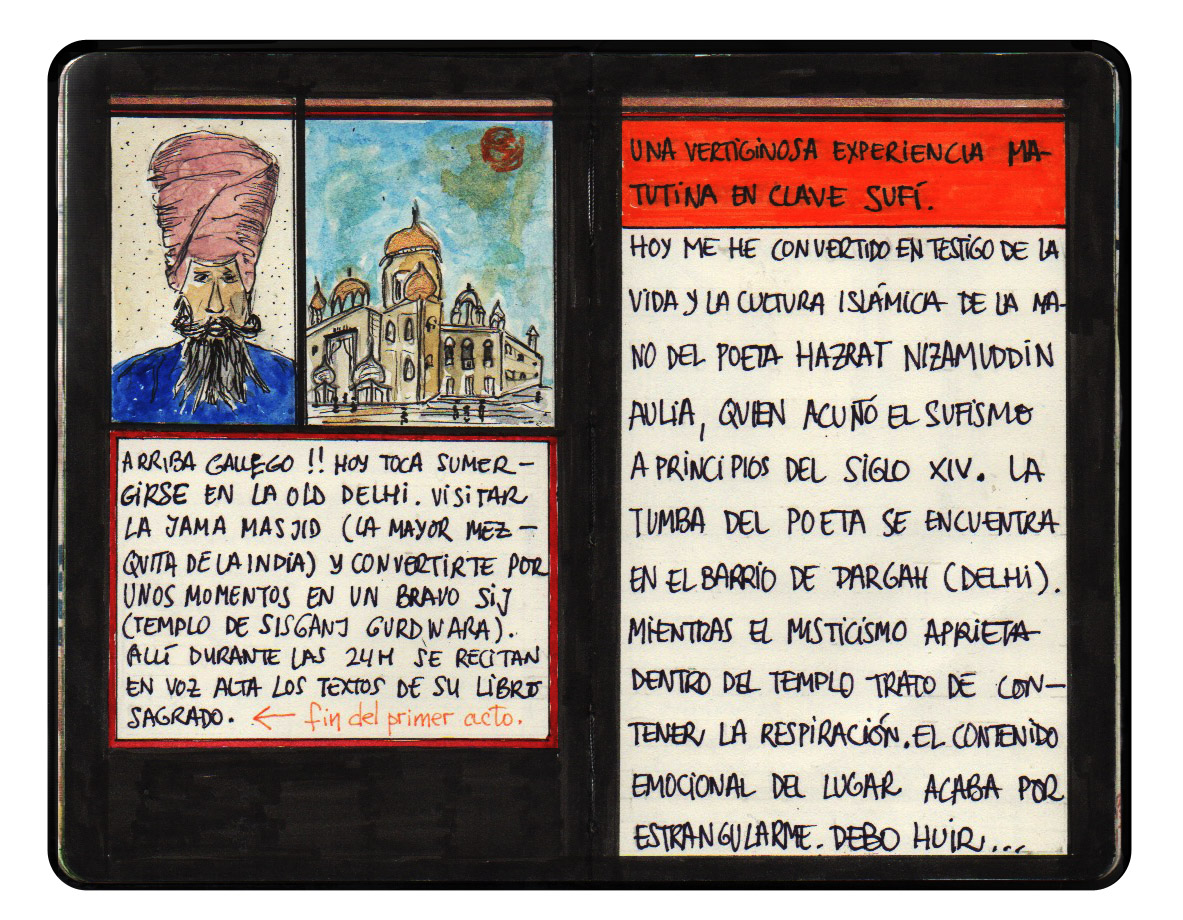 ARRIBA GALLEGO !! HOY TOCA SUMER-
GIRSE EN LA OLD DELHI. VISITAR
LA JAMA MASJID (LA MAYOR MEZ-
QUITA DE LA INDIA) Y CONVERTIRTE POR
UNOS MOMENTOS EN UN BRAVO SIJ
(TEMPLO DE SISGANJ GURDWARA).
ALLÍ DURANTE LAS 24H SE RECITAN
EN VOZ ALTA LOS TEXTOS DE SU LIBRO
SAGRADO. ← fin del primer acto.
UNA VERTIGINOSA EXPERIENCIA MA-
TUTINA EN CLAVE SUFÍ.
HOY ME HE CONVERTIDO EN TESTIGO DE LA
VIDA Y LA CULTURA ISLÁMICA DE LA MA-
NO DEL POETA HAZRAT NIZAMUDDIN
AULIA, QUIEN ACUÑÓ EL SUFISMO
A PRINCIPIOS DEL SIGLO XIV. LA
TUMBA DEL POETA SE ENCUENTRA
EN EL BARRIO DE DARGAH (DELHI).
MIENTRAS EL MISTICISMO APRIETA
DENTRO DEL TEMPLO TRATO DE CON-
TENER LA RESPIRACIÓN. EL CONTENIDO
EMOCIONAL DEL LUGAR ACABA POR
ESTRANGULARME. DEBO HUIR...